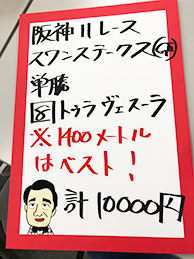 阪神11レース
スワンステークス(GII)
単勝
8 トゥラヴェスーラ
※1400メートル
はベスト!
計10000円